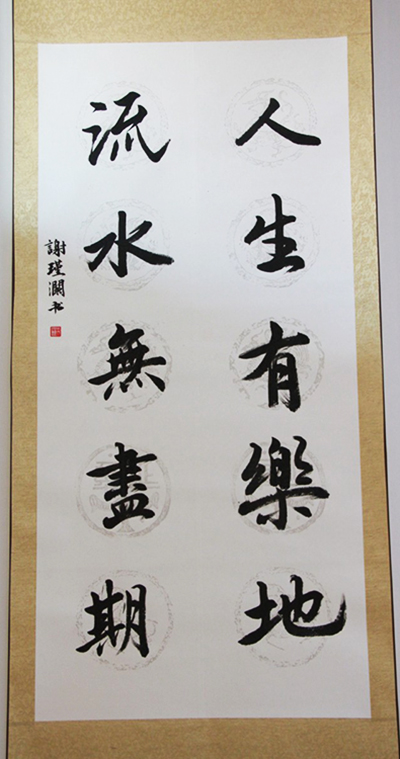 人生有樂地
流水無盡期
謝瑾瀾书